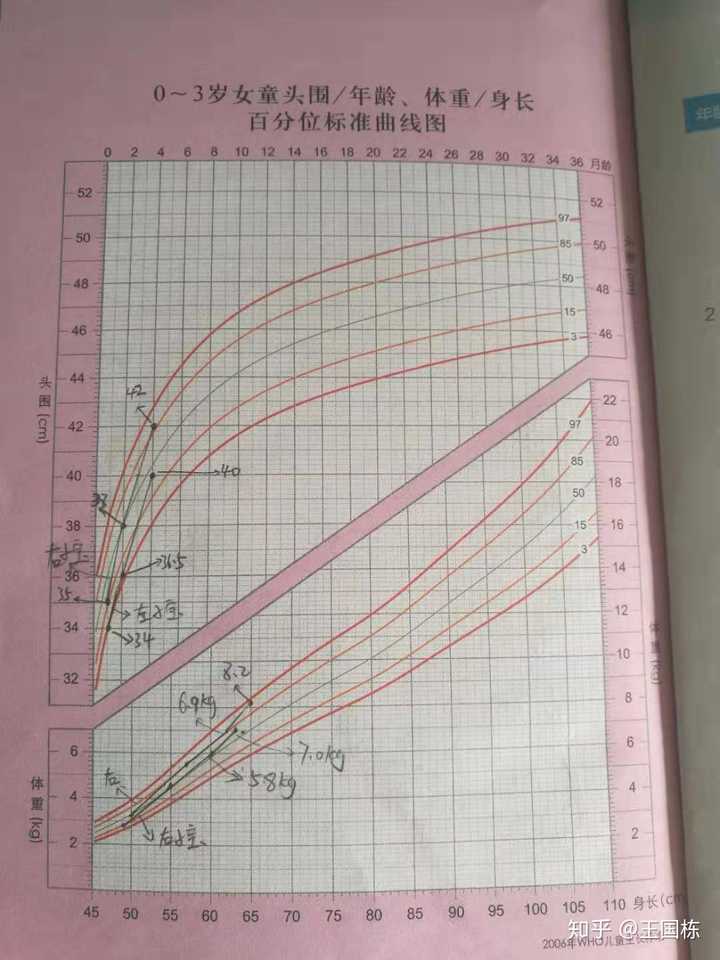 0～3岁女童头围/年龄、体重/身长
百分位标准曲线图
0 2 4 6 8 10 12 14 16 18 20 22 24 26 28 30 32 34 36 月龄
52
50
48
46
44
42
40
38
36
34
32
头围(cm)
97
85
50
15
3
52
50
48
46
42
40
38
36.5
35
左女宝
34
97
85
50
15
3
22
20
18
16
14
12
10
8
6
4
2
体重(kg)
8.2
6.9kg
7.0kg
5.8kg
右
右女宝
6
4
2
体重(kg)
45 50 55 60 65 70 75 80 85 90 95 100 105 110 身长(cm)
2006年WHO儿童生长
知乎 @王国栋
年龄
2